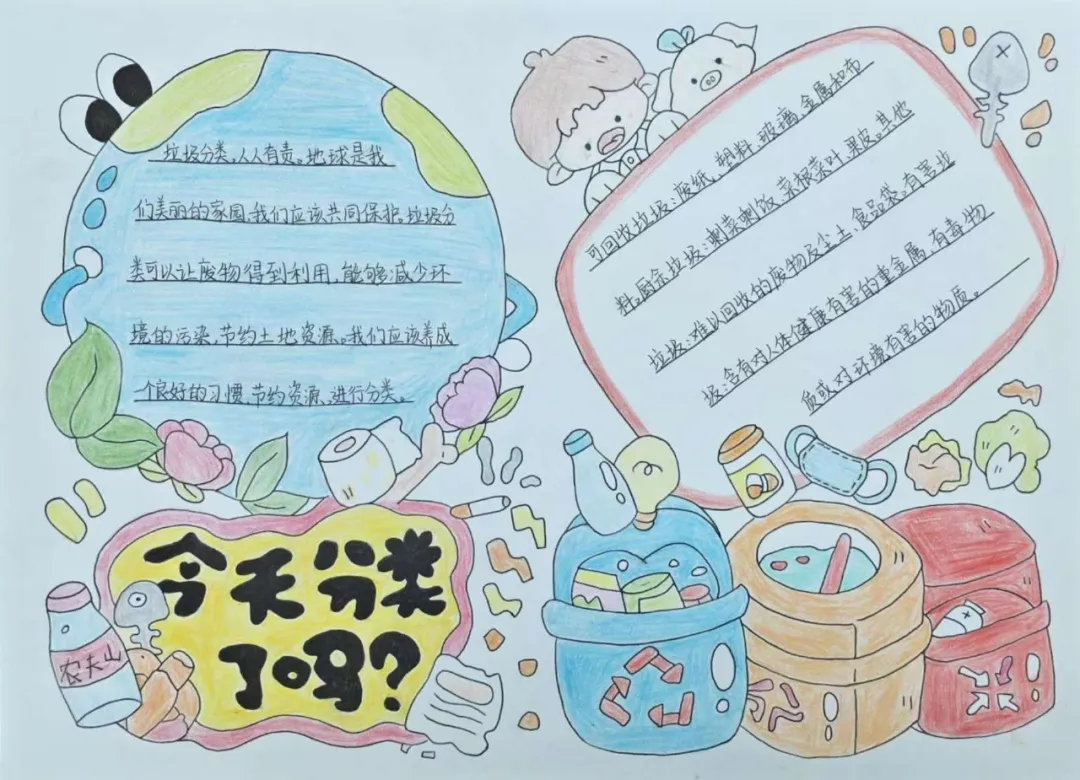 垃圾分类,人人有责。地球是我
们美丽的家园,我们应该共同保护,垃圾分
类可以让废物得到利用,能够减少环
境的污染,节约土地资源。我们应该养成
一个良好的习惯,节约资源、进行分类。
可回收垃圾:废纸、塑料、玻璃、金属和布
料。厨余垃圾:剩菜剩饭、菜根菜叶、果皮。其他
垃圾:难以回收的废物及尘土、食品袋。有害垃
圾:含有对人体健康有害的重金属,有毒物
质或对环境有害的物质。
今天分类
了吗?
农夫山